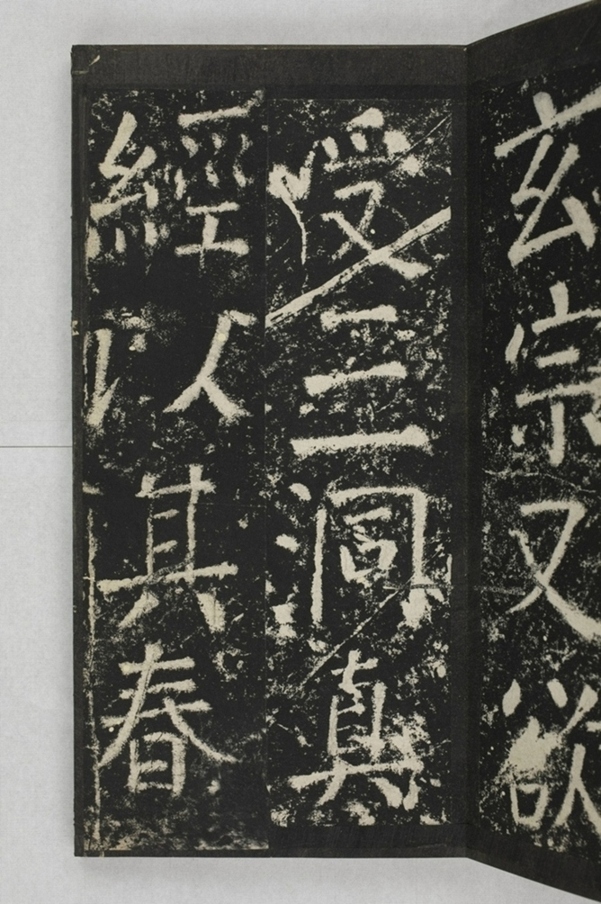 玄宗又欲
受三洞真
經以其春